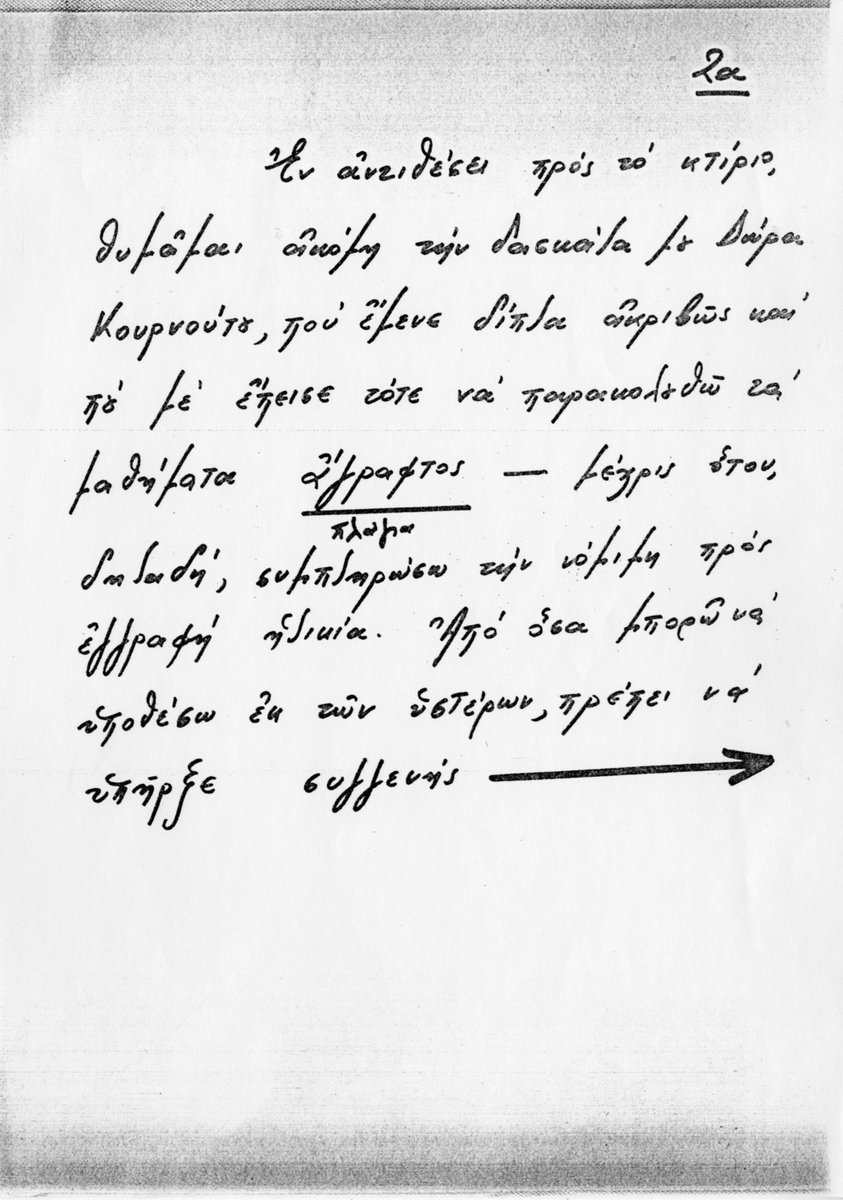 2α
Ἐν ἀντιθέσει πρός τό κτίριο,
θυμᾶμαι ἀκόμη τήν δασκάλα μȣ Δώρα
Κουρνούτȣ, πού ἔμενε δίπλα ἀκριβῶς καί
πȣ́ μέ ἔπεισε τότε νά παρακολȣθῶ τά
μαθήματα ἄγραφτος — μέχρις ὅτου,
πλάγια
δηλαδή, συμπληρώσω τήν νόμιμη πρός
ἐγγραφή ἡλικία. Ἀπό ὅσα μπορῶ νά
ὑποθέσω ἐκ τῶν ὑστέρων, πρέπει νά
ὑπῆρξε συγγενής